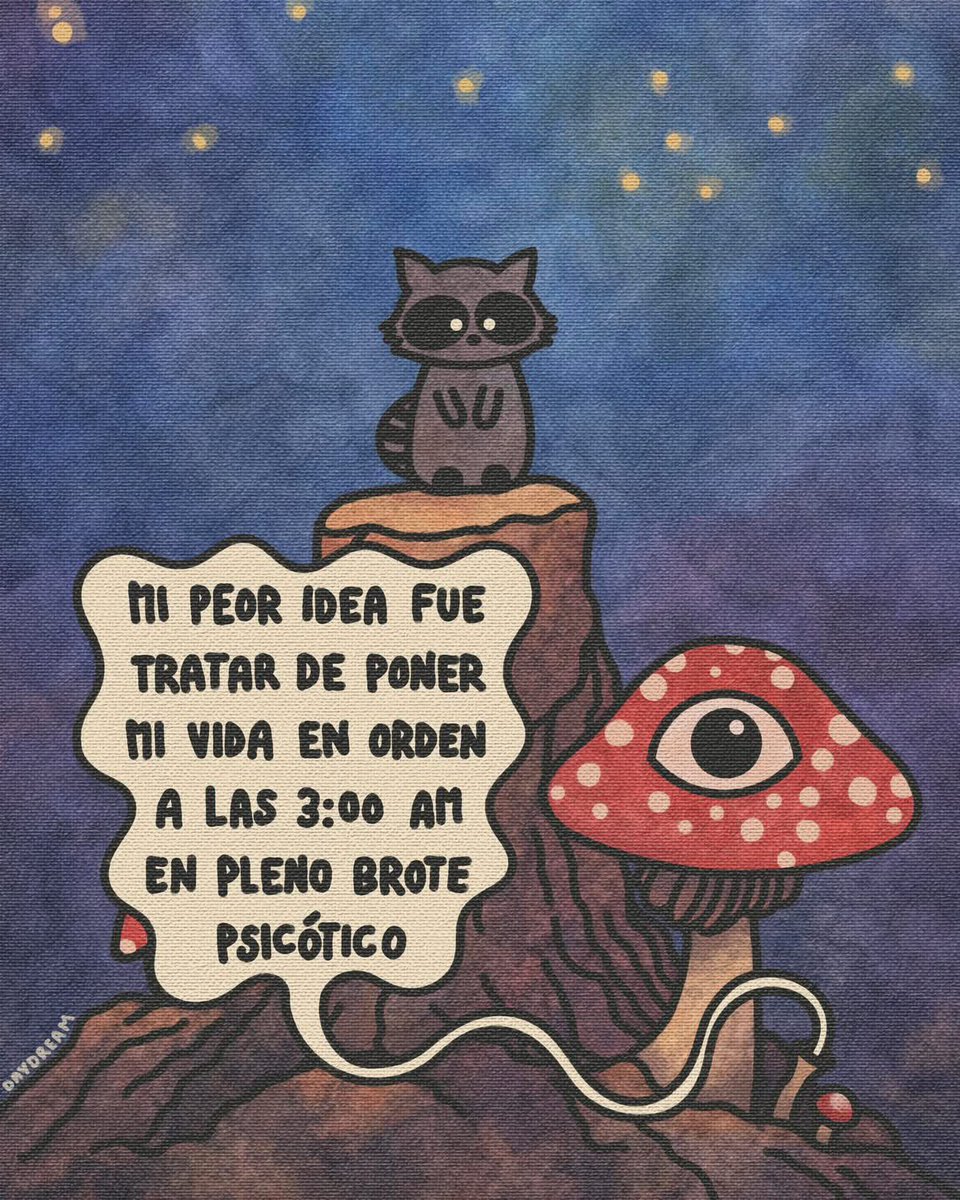 MI PEOR IDEA FUE
TRATAR DE PONER
MI VIDA EN ORDEN
A LAS 3:00 AM
EN PLENO BROTE
PSICÓTICO
DAYDREAM